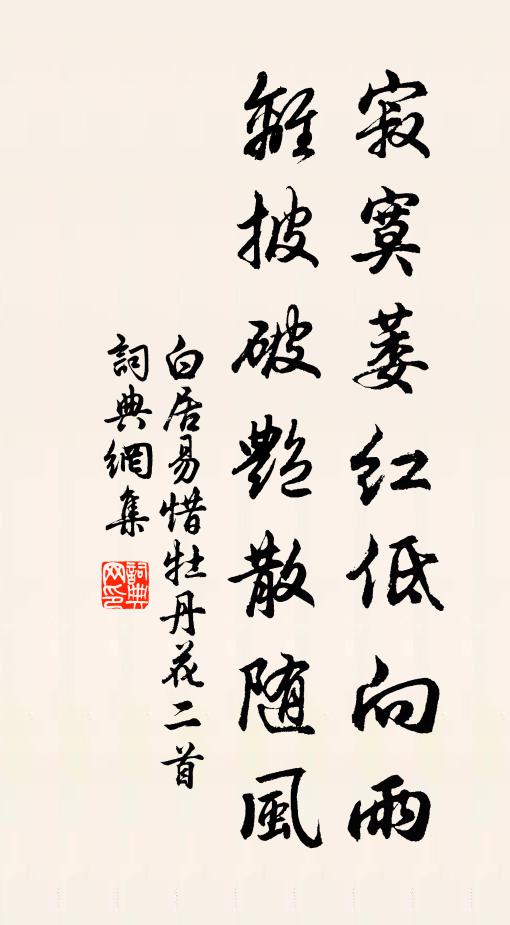 寂寞萎红低向雨
離披破艷散随風
白居易惜牡丹花二首
詞典網集
詞典网印